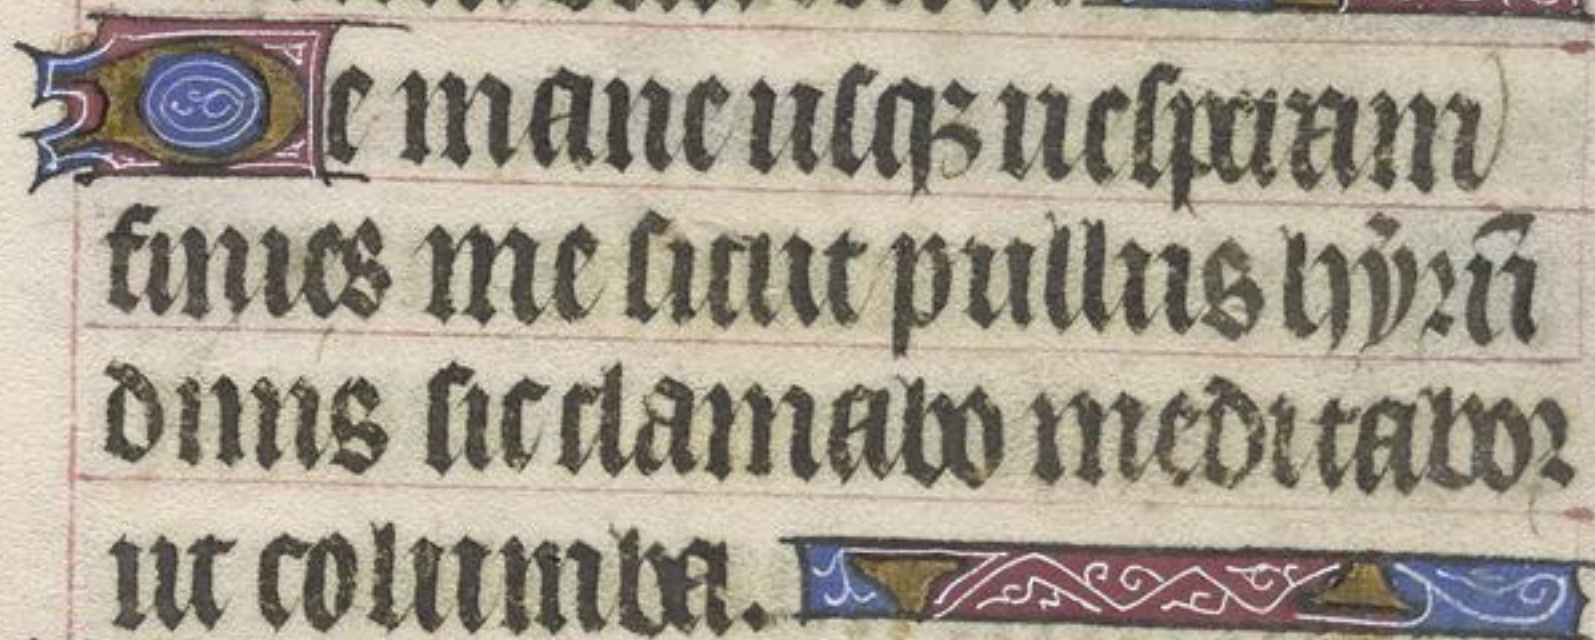 De mane usqꝫ uesperam
finies me sicut pullus hyrũ
dinis sic clamabo meditabor
ut columba.